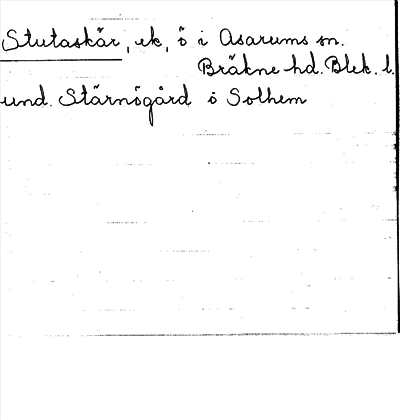 Stutaskär, ek, ö i Asarums sn.
Bräkne hd. Blek. l.
und. Stärnögård o Solhem